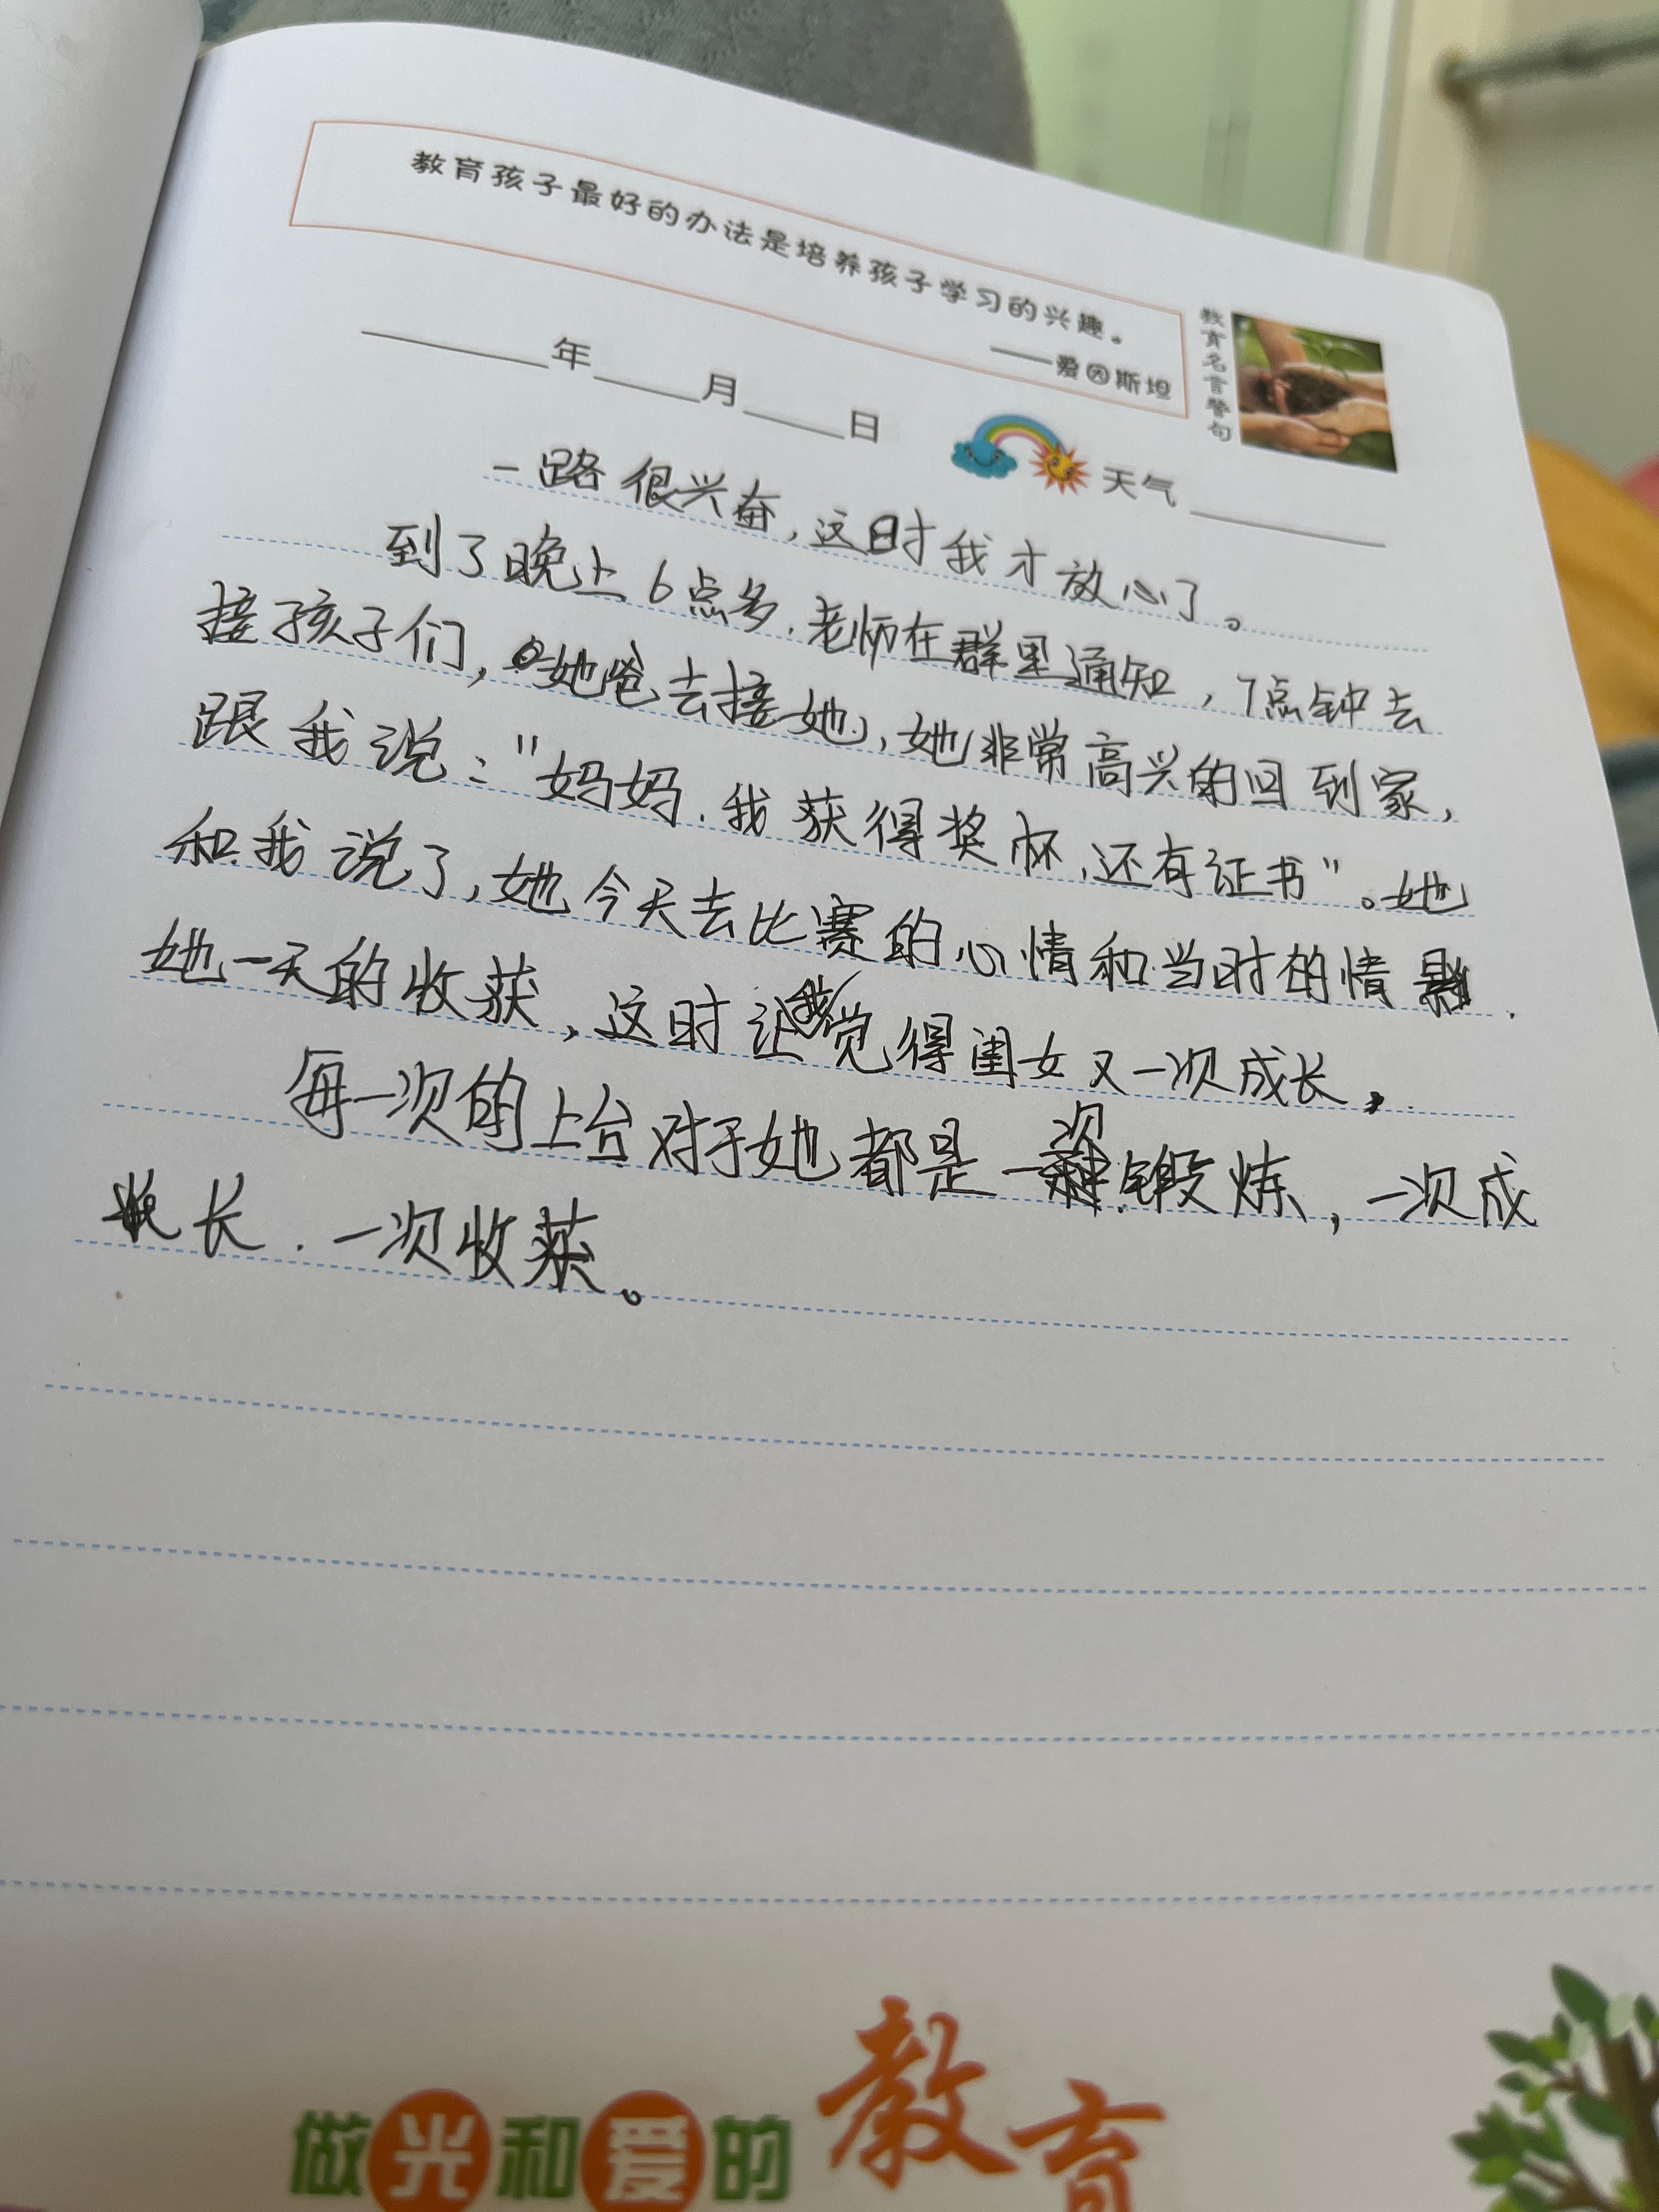 教育孩子最好的办法是培养孩子学习的兴趣。
——爱因斯坦
教育名言警句
年 月 日
天气
一路很兴奋，这时我才放心了。
到了晚上6点多，老师在群里通知，7点钟去
接孩子们，她爸去接她，她非常高兴的回到家，
跟我说："妈妈，我获得奖杯，还有证书"。她
和我说了，她今天去比赛的心情和当时的情景，
她一天的收获，这时让我觉得闺女又一次成长，
每一次的上台对于她都是一次锻炼，一次成
长，一次收获。
做光和爱的教育